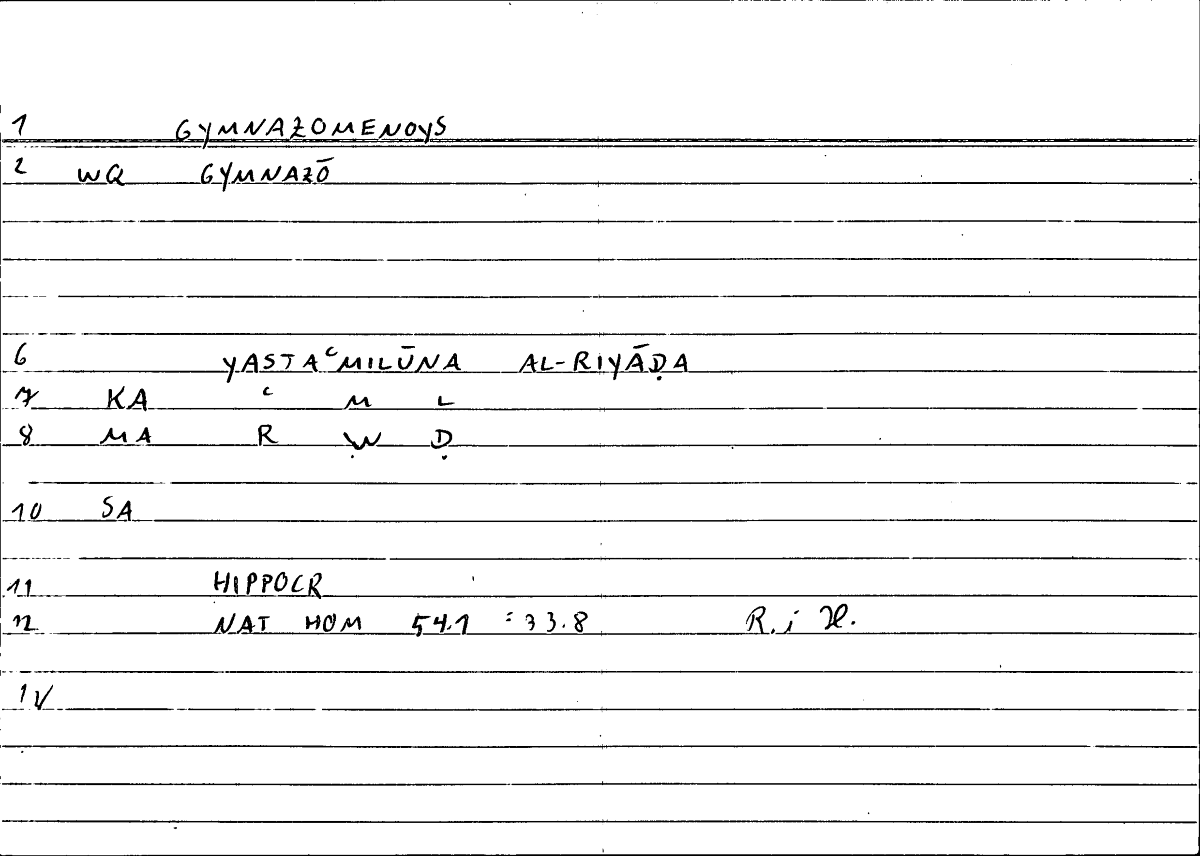 1 GYMNAZOMENOYS
2 WQ GYMNAZŌ
6 YASTAʿMILŪNA AL-RIYĀḌA
7 KA ʿ M L
8 MA R Ẉ Ḍ
10 SA
11 HIPPOCR
12 NAT HOM 54.1 = 33.8 R. i H.